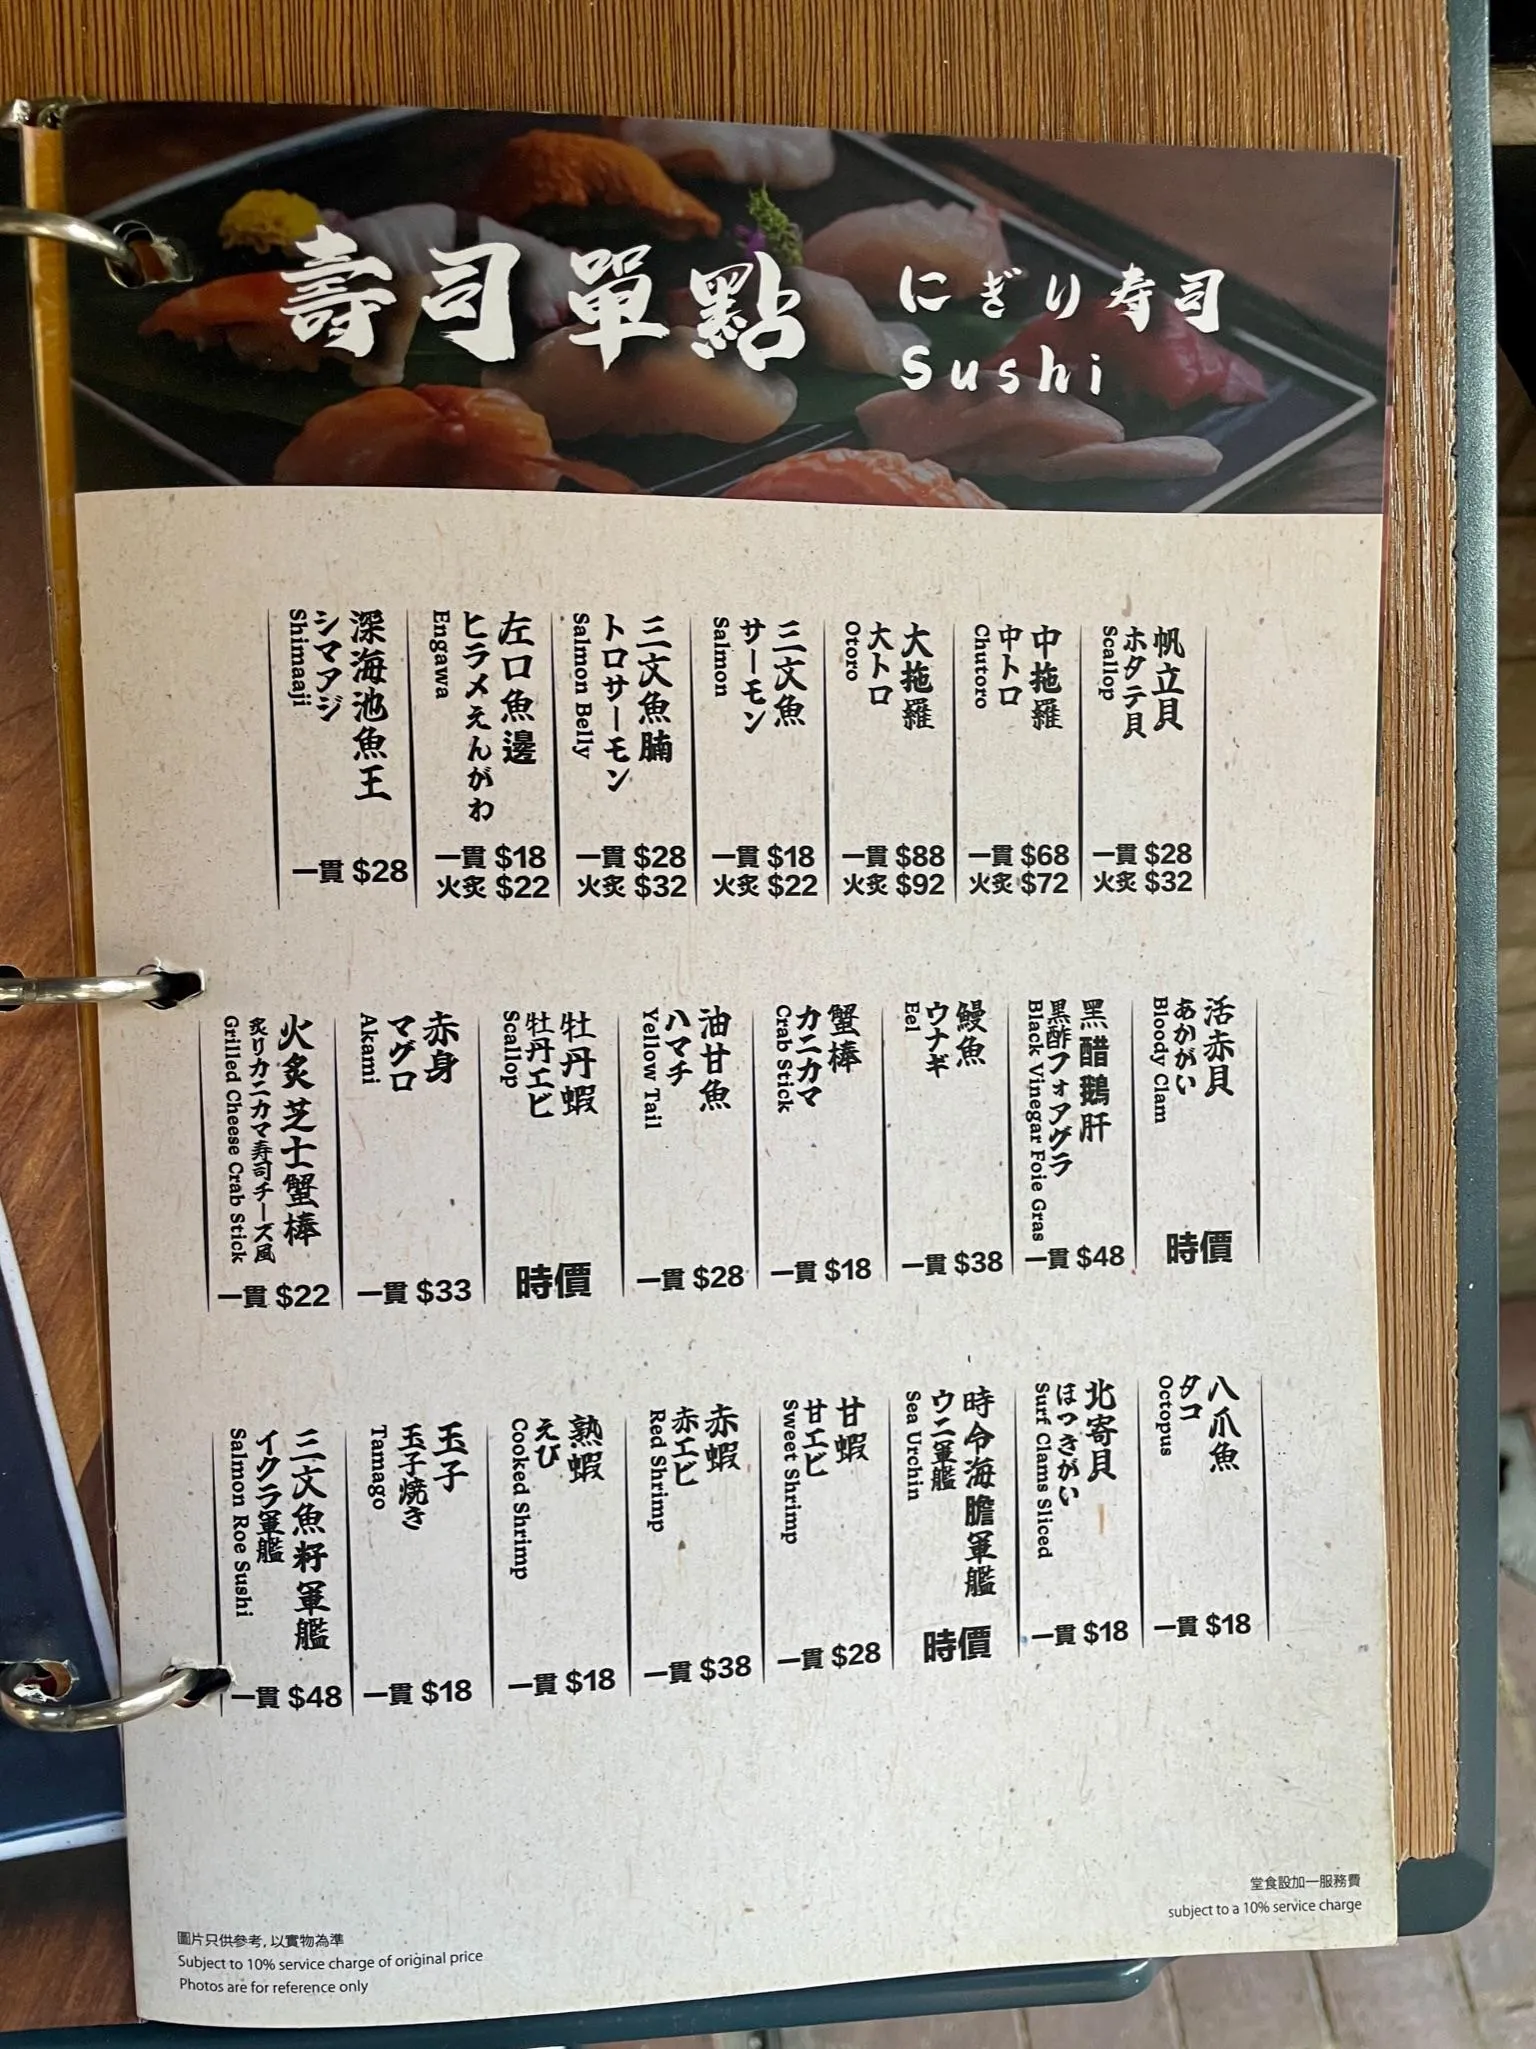 壽司單點
にぎり寿司
Sushi
帆立貝
ホタテ貝
Scallop
一貫 $28
火炙 $32
中拖羅
中トロ
Chutoro
一貫 $68
火炙 $72
大拖羅
大トロ
Otoro
一貫 $88
火炙 $92
三文魚
サーモン
Salmon
一貫 $18
火炙 $22
三文魚腩
トロサーモン
Salmon Belly
一貫 $28
火炙 $32
左口魚邊
ヒラメえんがわ
Engawa
一貫 $18
火炙 $22
深海池魚王
シマアジ
Shimaaji
一貫 $28
活赤貝
あかがい
Bloody Clam
時價
黑醋鵝肝
黒酢フォアグラ
Black Vinegar Foie Gras
一貫 $48
鰻魚
ウナギ
Eel
一貫 $38
蟹棒
カニカマ
Crab Stick
一貫 $18
油甘魚
ハマチ
Yellow Tail
一貫 $28
牡丹蝦
牡丹エビ
Scallop
時價
赤身
マグロ
Akami
一貫 $33
火炙芝士蟹棒
炙りカニカマ寿司チーズ風
Grilled Cheese Crab Stick
一貫 $22
八爪魚
タコ
Octopus
一貫 $18
北寄貝
ほっきがい
Surf Clams Sliced
一貫 $18
時令海膽軍艦
ウニ軍艦
Sea Urchin
時價
甘蝦
甘エビ
Sweet Shrimp
一貫 $28
赤蝦
赤エビ
Red Shrimp
一貫 $38
熟蝦
えび
Cooked Shrimp
一貫 $18
玉子
玉子焼き
Tamago
一貫 $18
三文魚籽軍艦
イクラ軍艦
Salmon Roe Sushi
一貫 $48
堂食設加一服務費
subject to a 10% service charge
圖片只供參考，以實物為準
Subject to 10% service charge of original price
Photos are for reference only